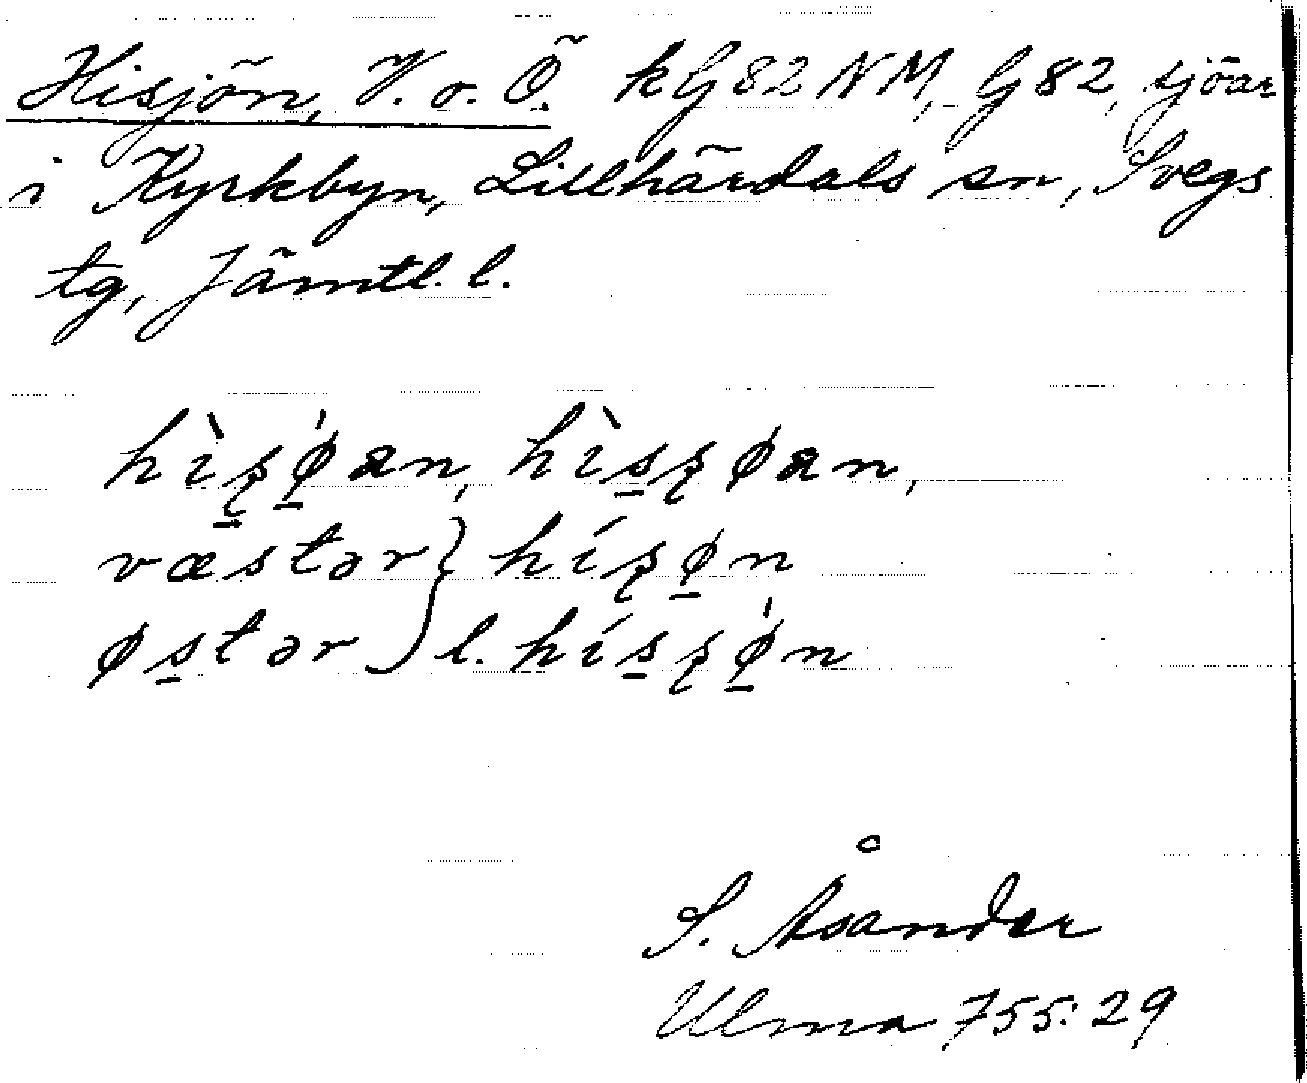 Hisjön, V. o. Ö. kG82NM, G82, sjöar
i Kyrkbyn, Lillhärdals sn, Svegs
tg, Jämtl. l.
hìʂǿ̠an, hìs̠ʂøan,
væstər } híʂø̠n
øs̠tər } l. hís̠ʂǿ̠n
S. Åsander
Ulma 755:29